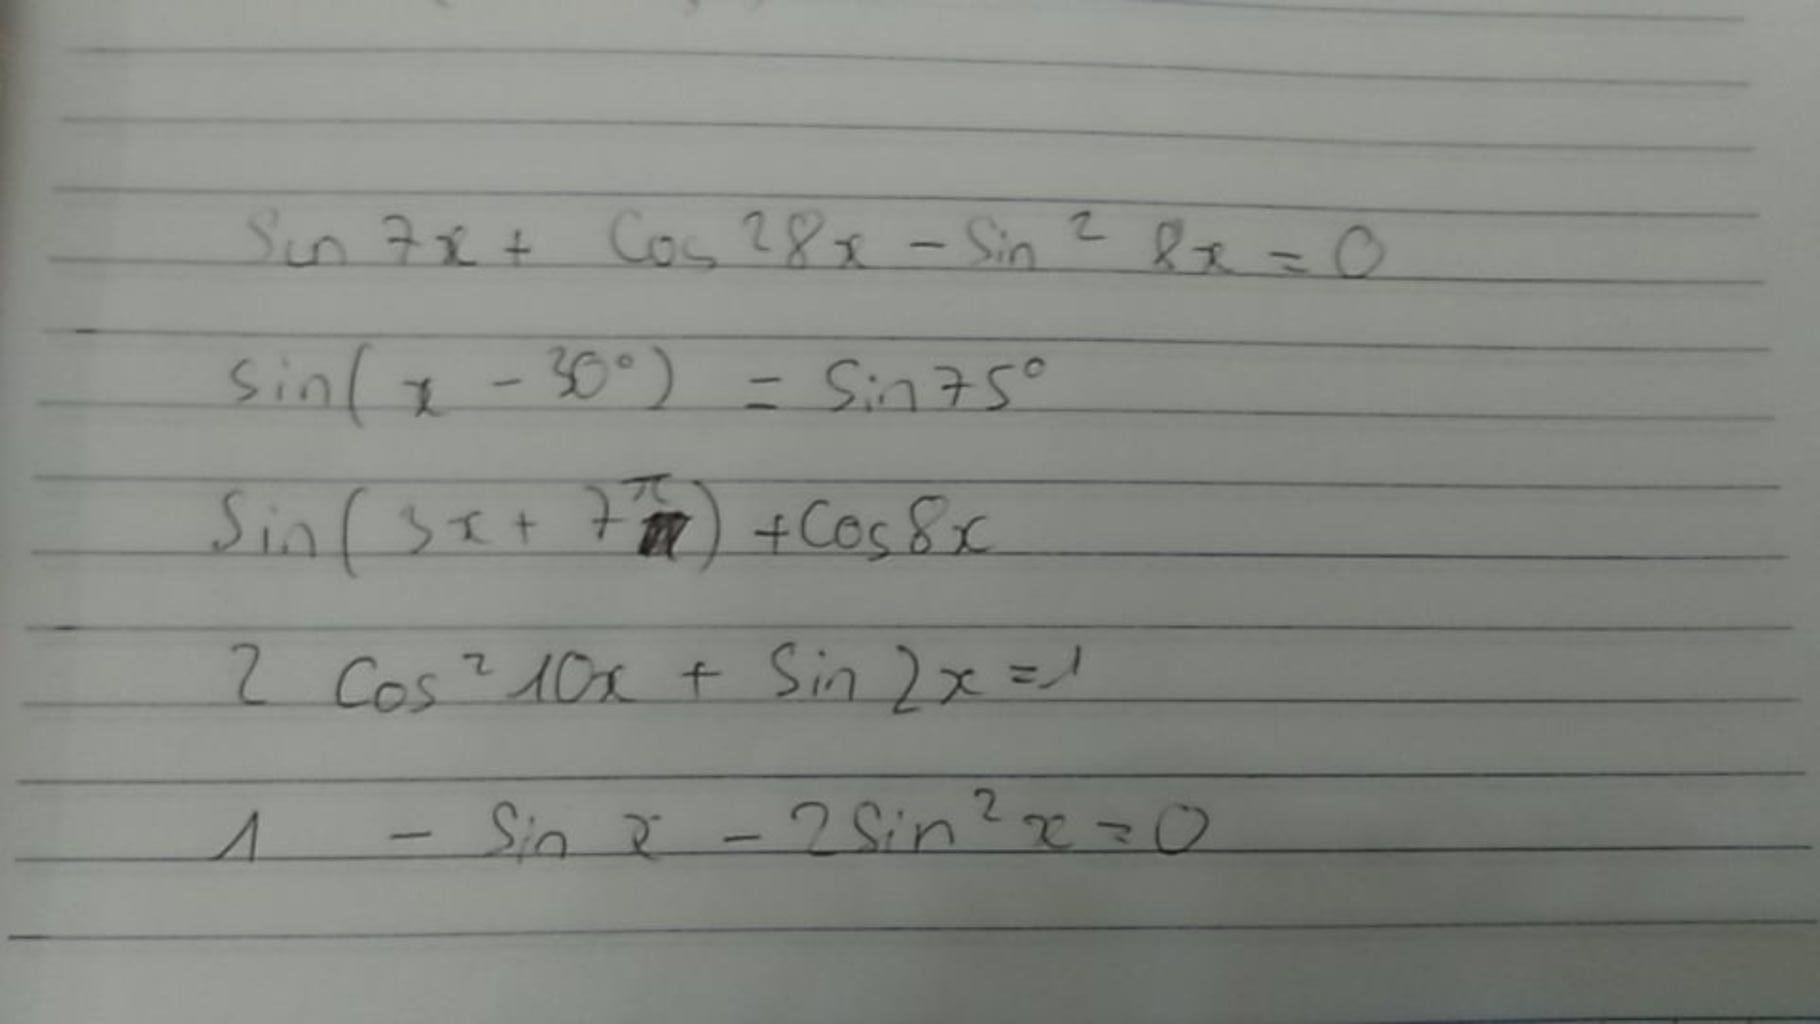 Sin 7x + Cos²8x - Sin² 8x = 0
sin(x - 30°) = Sin75°
Sin(3x + 7π) + Cos8x
2 Cos²10x + Sin 2x = 1
1 - Sin x - 2Sin²x = 0